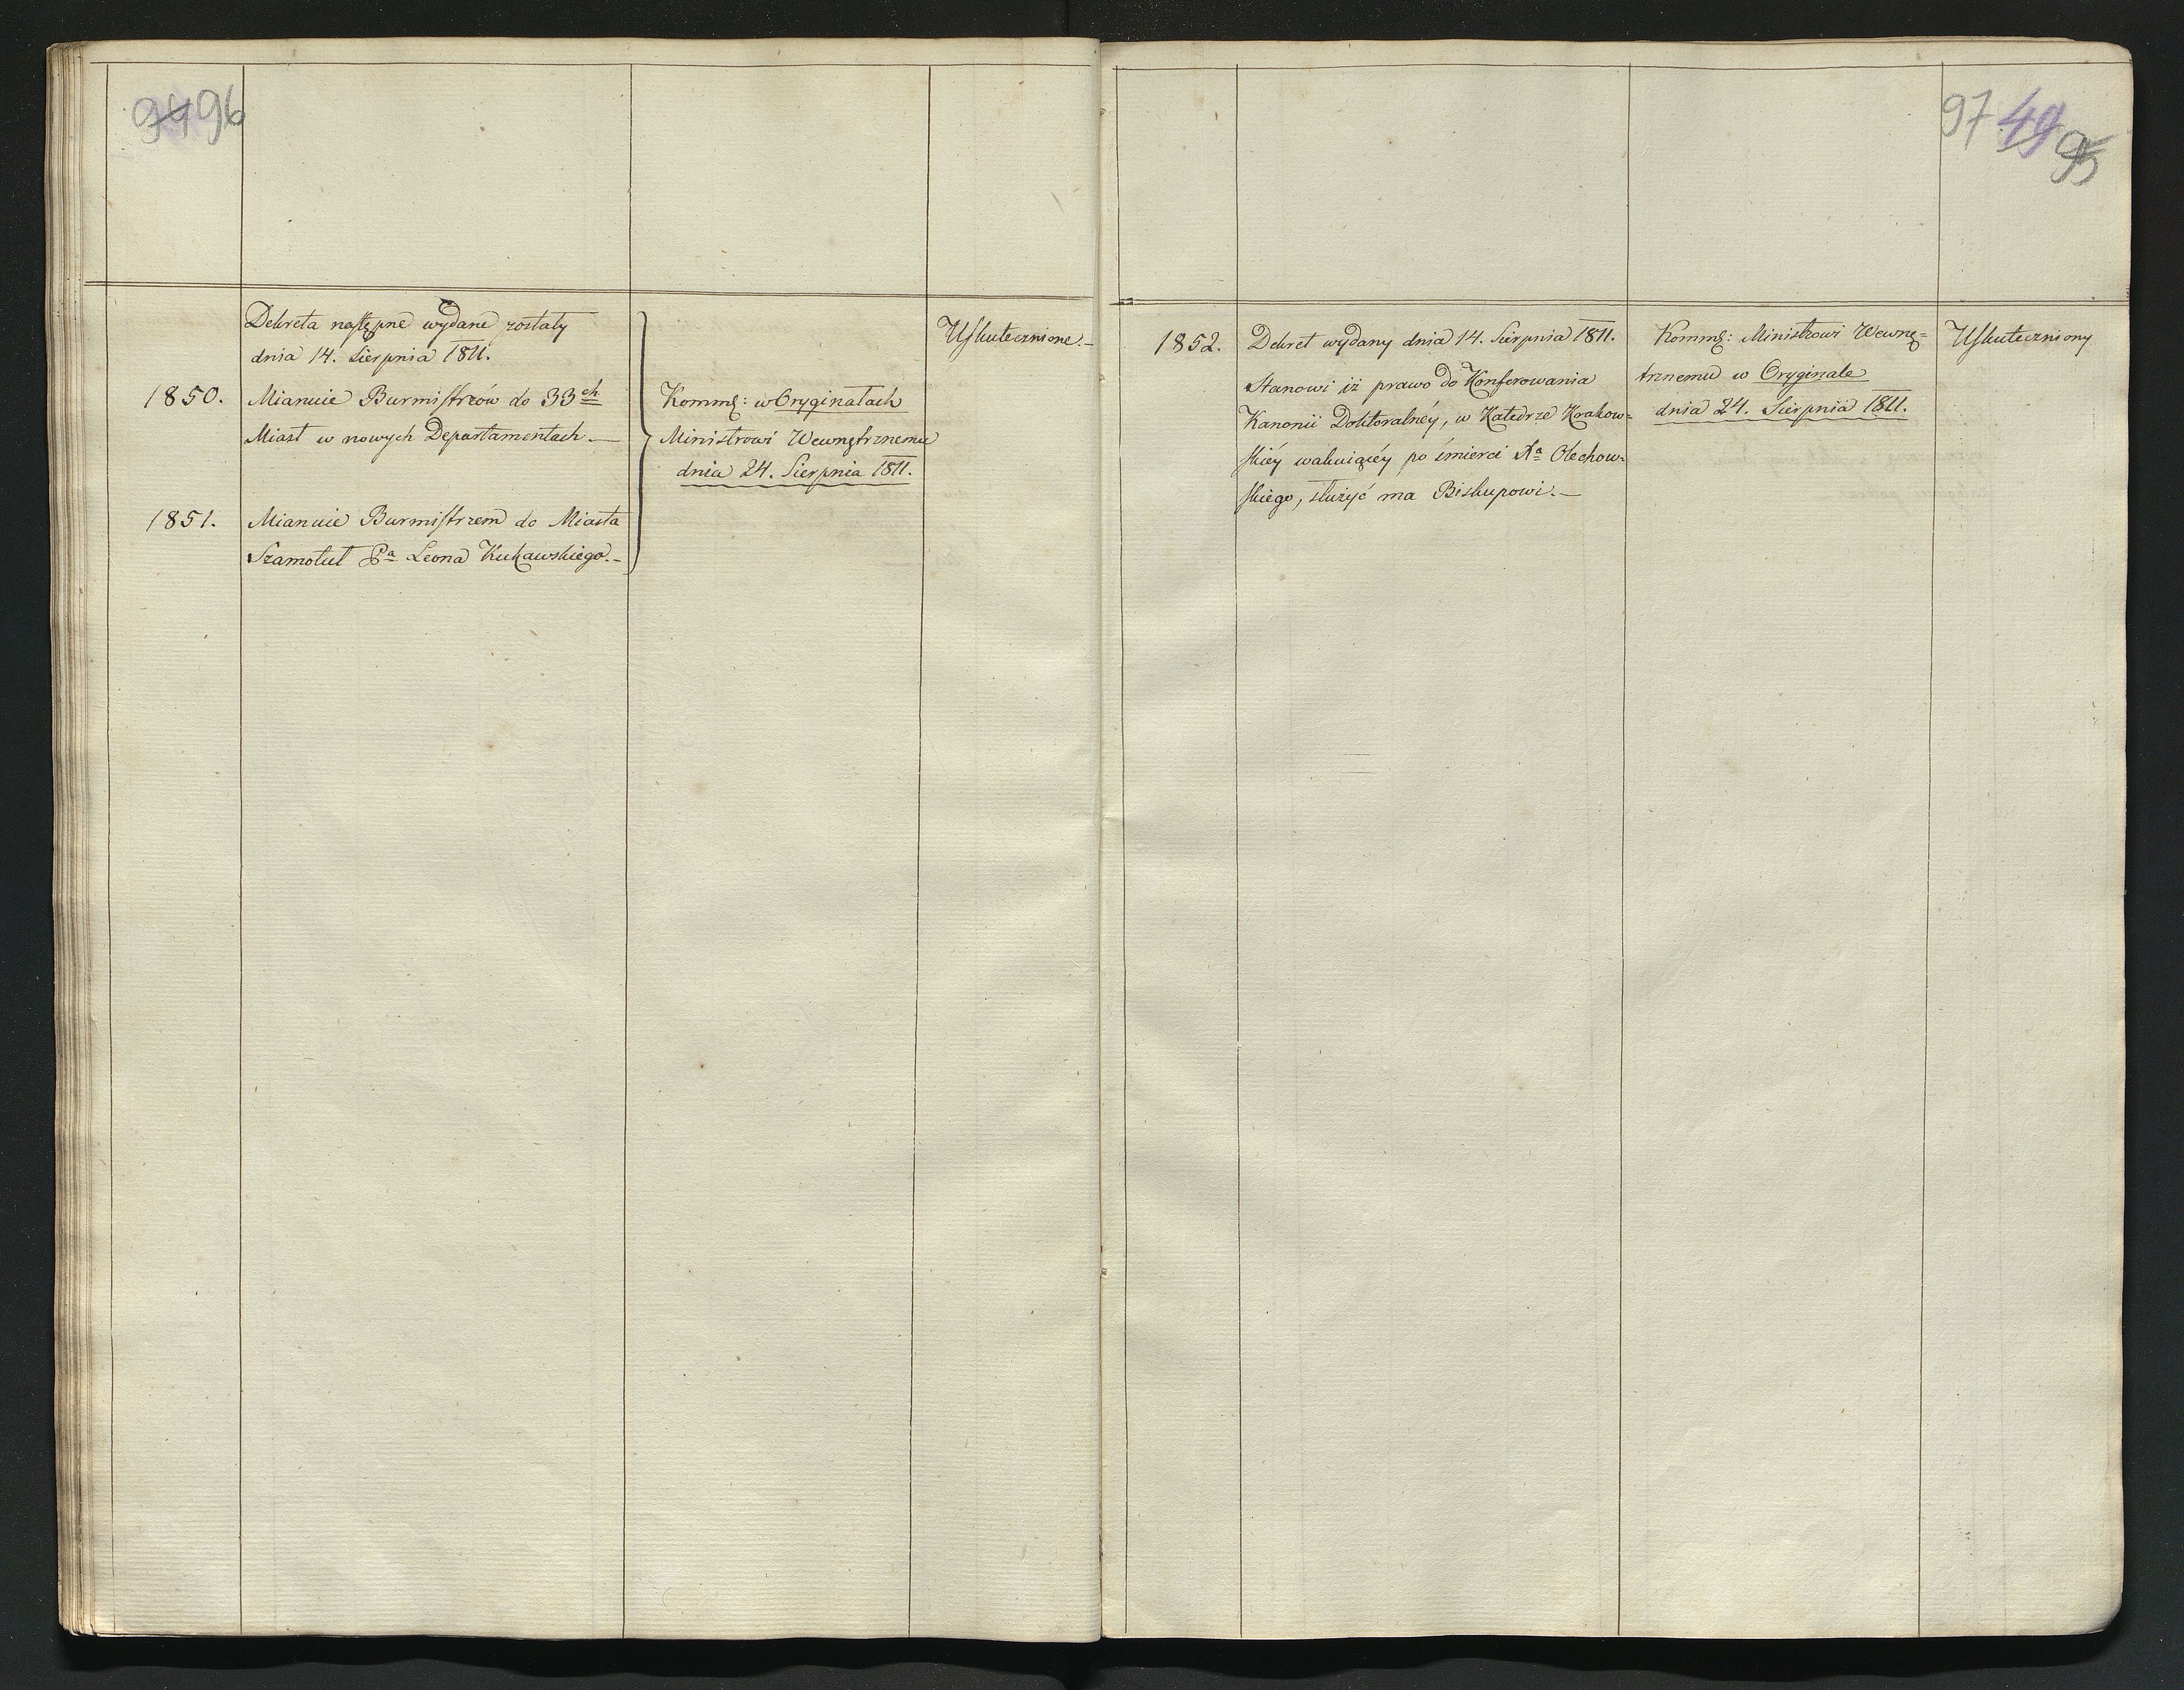 94 96
Dekreta następne wydane zostały
dnia 14. Sierpnia 1811.
1850. Mianuie Burmistrzów do 33ch
Miast w nowych Departamentach.—
1851. Mianuie Burmistrzem do Miasta
Szamotuł Pa Leona Kukawskiego.—
Kommǝ: w Oryginałach
Ministrowi Wewnętrznemu
dnia 24. Sierpnia 1811.
Uskutecznione.—
97 49 95
1852. Dekret wydany dnia 14. Sierpnia 1811.
Stanowi iż prawo do Konferowania
Kanonii Doktoralnéy, w Katedrze Krakow=
skiéy wakuiącéy po śmierci Xa Olechow=
skiego, służyć ma Biskupowi.—
Kommǝ: Ministrowi Wewnę=
trznemu w Oryginale
dnia 24. Sierpnia 1811.
Uskuteczniony